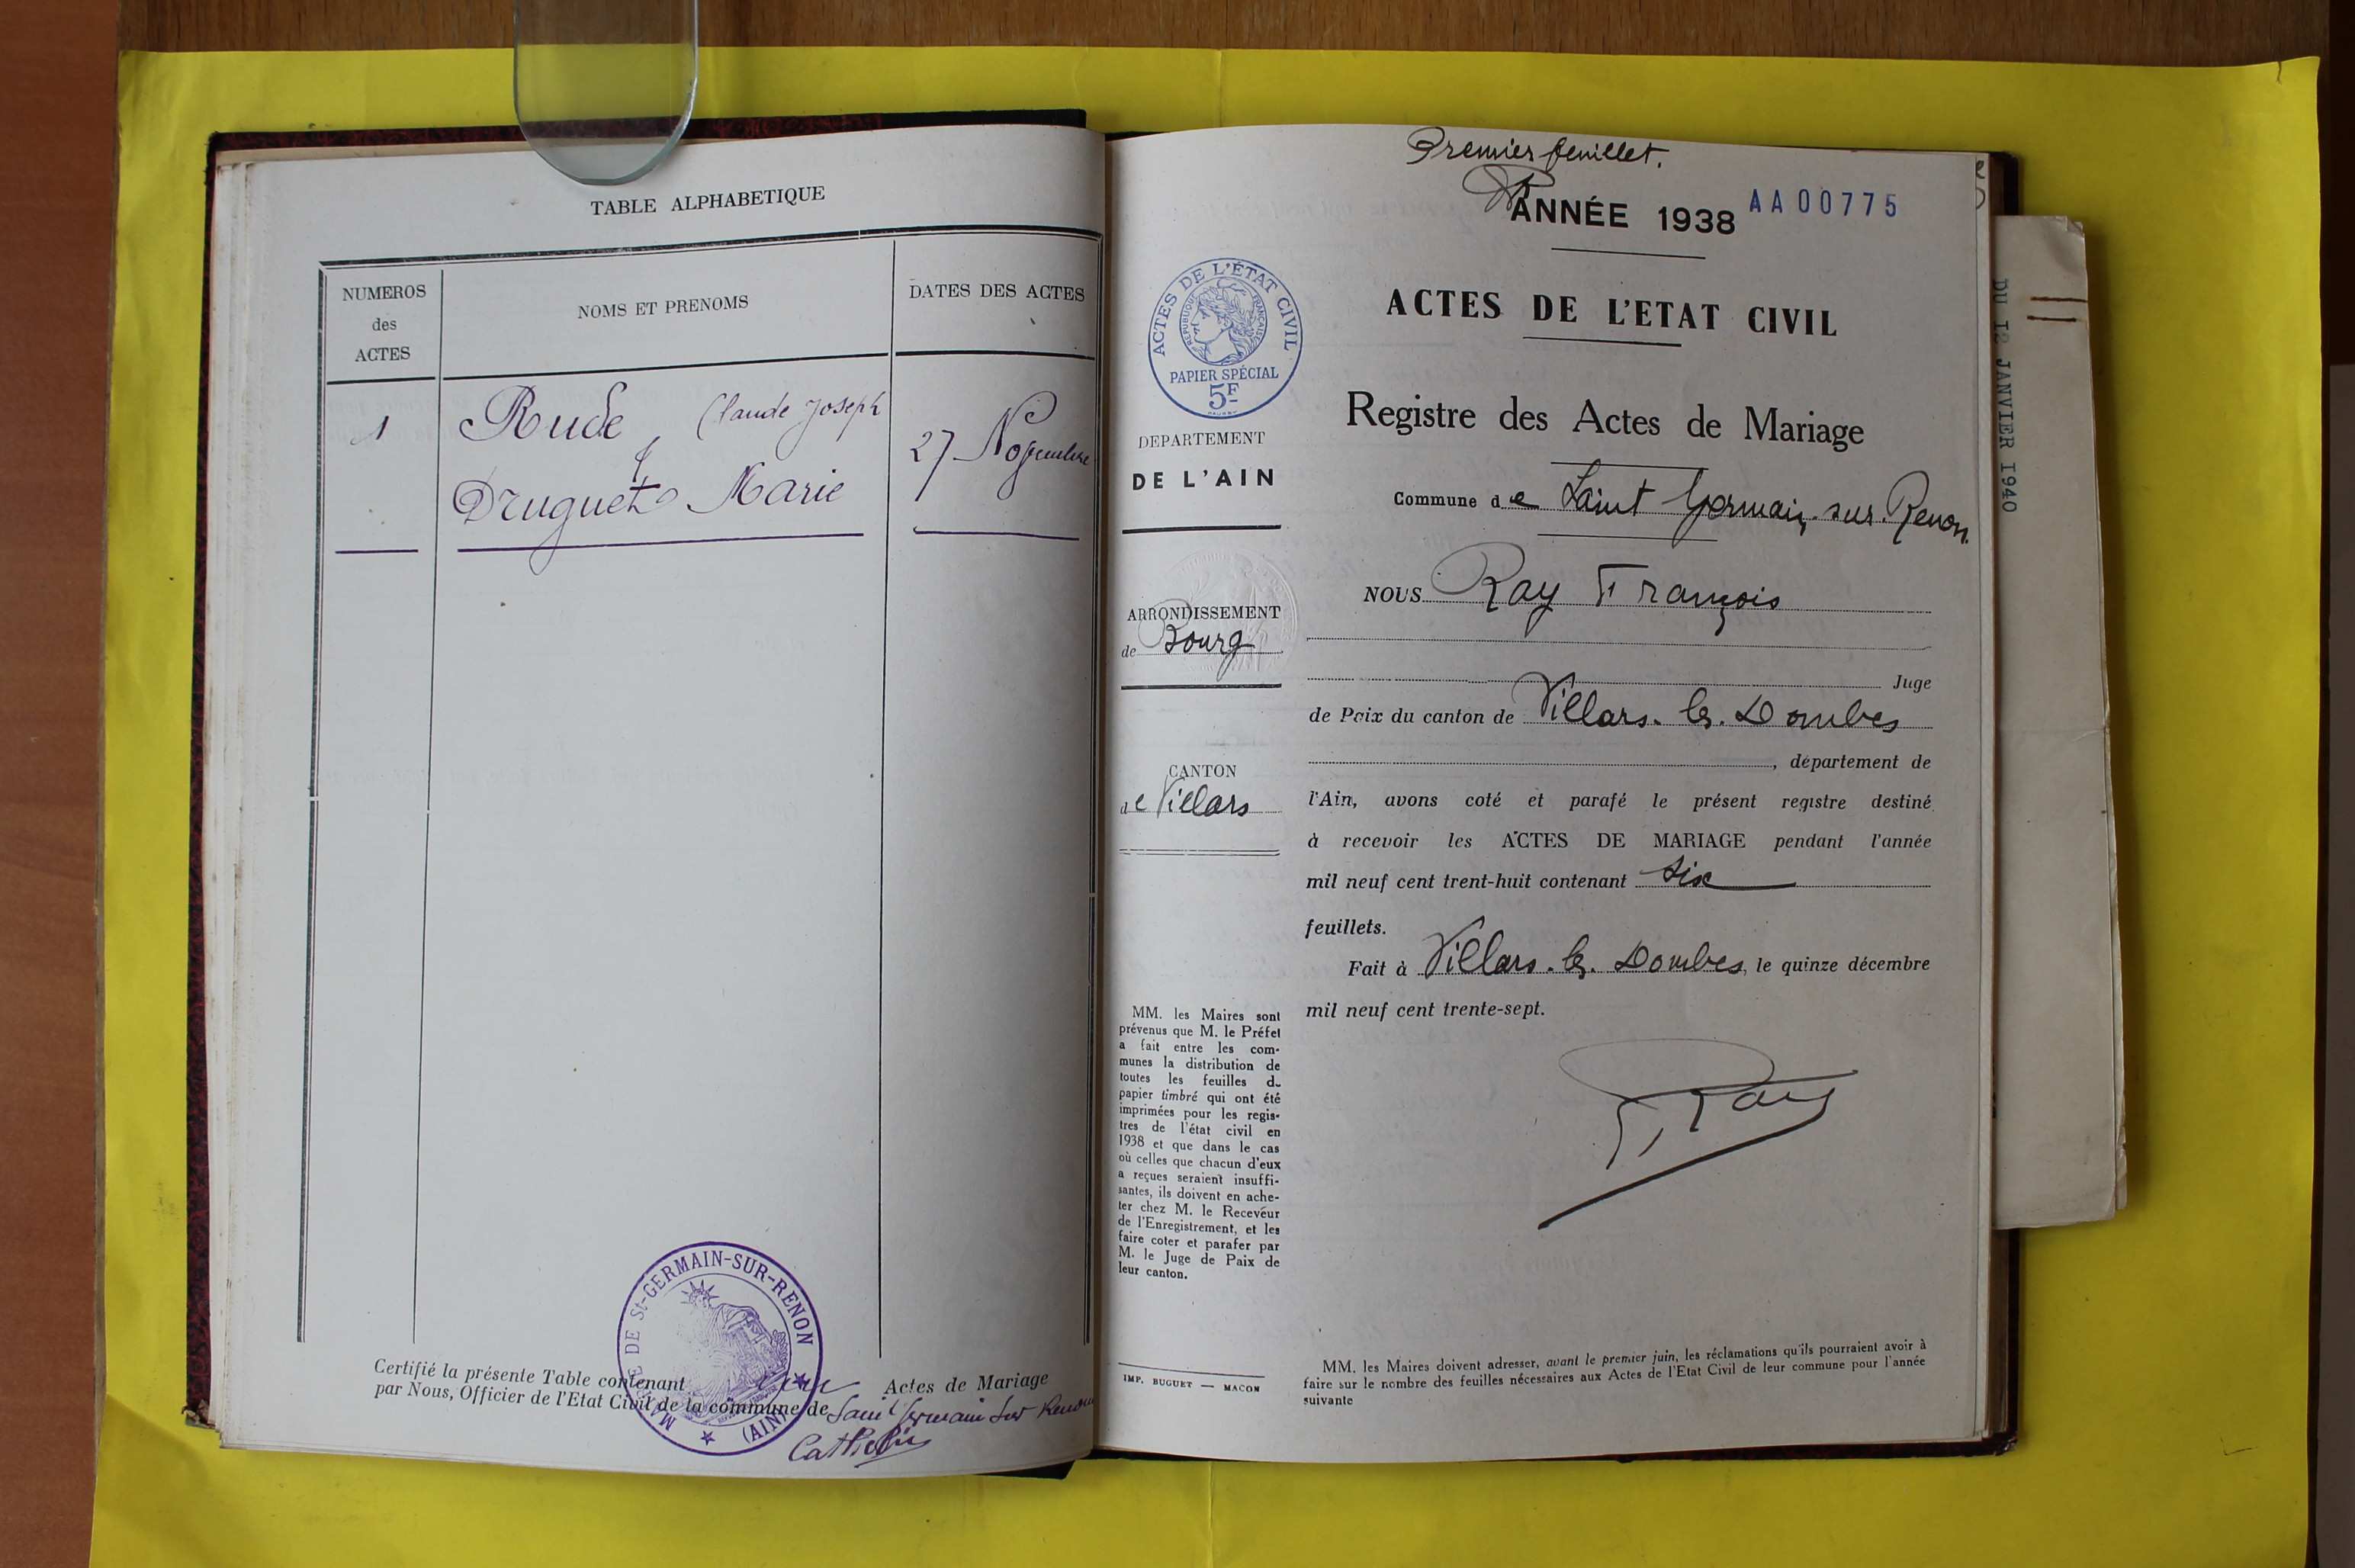 TABLE ALPHABETIQUE
NUMEROS
des
ACTES
NOMS ET PRENOMS
DATES DES ACTES
1
Rude, Claude Joseph
&
Druguet Marie
27 Novembre
MAIRIE DE St-GERMAIN-SUR-RENON
(AIN)
Certifié la présente Table contenant un Actes de Mariage
par Nous, Officier de l'Etat Civil de la commune de Saint Germain sur Renon
Premier feuillet.
ANNÉE 1938
AA00775
ACTES DE L'ÉTAT CIVIL
REPUBLIQUE FRANÇAISE
PAPIER SPÉCIAL
5F
DEPARTEMENT
DE L'AIN
ARRONDISSEMENT
de Bourg
CANTON
de Villars
MM. les Maires sont
prévenus que M. le Préfet
a fait entre les com-
munes la distribution de
toutes les feuilles de
papier timbré qui ont été
imprimées pour les regis-
tres de l'état civil en
1938 et que dans le cas
où celles que chacun d'eux
a reçues seraient insuffi-
santes, ils doivent en ache-
ter chez M. le Receveur
de l'Enregistrement, et les
faire coter et parafer par
M. le Juge de Paix de
leur canton.
IMP. BUGUET — MACON
ACTES DE L'ETAT CIVIL
Registre des Actes de Mariage
Commune de Saint Germain-sur-Renon.
NOUS Ray François
Juge
de Paix du canton de Villars-les-Dombes
, département de
l'Ain, avons coté et parafé le présent registre destiné
à recevoir les ACTES DE MARIAGE pendant l'année
mil neuf cent trent-huit contenant Six
feuillets.
Fait à Villars-les-Dombes, le quinze décembre
mil neuf cent trente-sept.
F. Ray
MM. les Maires doivent adresser, avant le premier juin, les réclamations qu'ils pourraient avoir à
faire sur le nombre des feuilles nécessaires aux Actes de l'Etat Civil de leur commune pour l'année
suivante
DU 12 JANVIER 1940